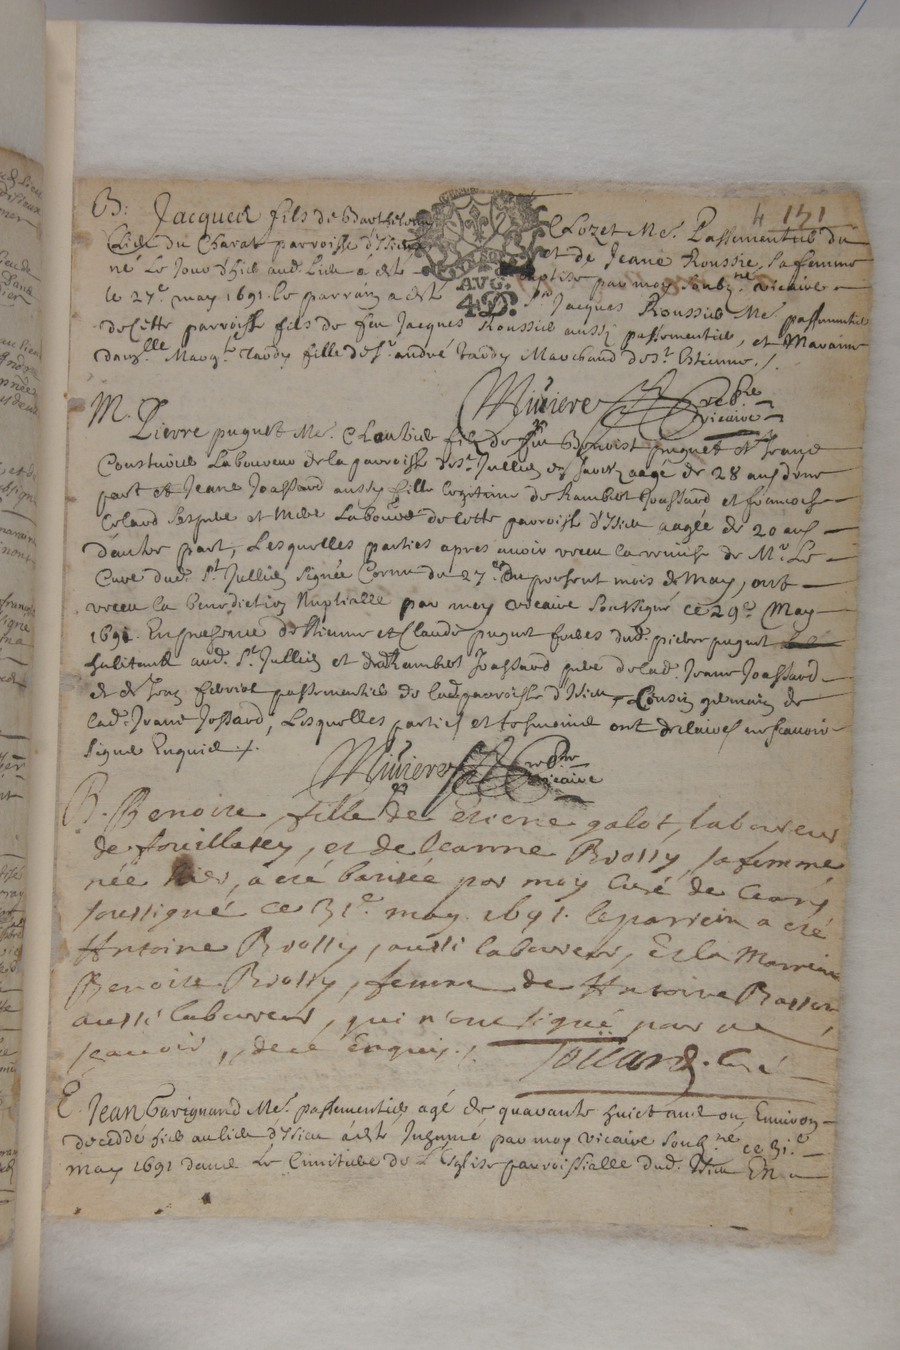 4 151
B: Jacques fils de Barthelemy Clozet Me. Passementier du
Lieu du Charat parroisse d'Izieu et de Jeane Roussier sa femme
né Le Jour d'hier aud. Lieu à esté baptisé par moy soubz.né vicaire
AVG.
4D.
le 27e. may 1691. le parrain a esté Sr. Jacques Roussier Me passementier
de cette parroisse fils de feu Jacques Roussier aussy passementier, et Maraine
dam.lle Marg.te tardy fille de Sr. andré tardy Marchand de St. Etienne./.
Miviere pbre
vicaire
M. Pierre puguet Me. fils de feu Benoist puguet et Jeane
Laboureur de la parroisse de St. Jullien en Jarez aagé de 28 ans d'une
part et Jeane Joassard aussy fille legitime de Rambert Joassard et francoise
Colard et Labour de cette parroisse d'Izieu aagée de 20 ans
d'autre part, Lesquelles parties apres avoir receu la remise de Mr. Le
Curé dud. St. Jullien signée Cornu du 27e du present mois de May, ont
receu la benediction Nuptialle par moy vicaire soussigné ce 29e May
1691. En presence d'Etienne et Claude puguet freres dud. pierre puguet
habitants aud. St. Jullien et de Rambert Joassard pere de lad. Jeane Joassard
et de Jean passementier de lad. parroisse d'Izieu Cousin germain de
lad. Jeane Jossard, Lesquelles parties et tesmoins ont declairés ne scavoir
signer Enquis ./.
Miviere pbre
vicaire
B. Benoite, fille de etiene galot, laboureur
de fouillasey, et de Jeanne Brossy, sa femme
née hier, a été batisée par moy curé de ceans
soussigné ce 31e. may. 1691. le parrein a été
Antoine Brossy, aussi laboureur, et la Marreine
Benoite Brossy, femme de Antoine Basson
aussi laboureur, qui n'ont signé pour ne
scavoir, de ce Enquis./. Jollard. Curé
E. Jean Gavignand Me. passementier agé de quarante huict ans ou, Environ
decedé hier au lieu d'Izieu à esté Inhumé par moy vicaire soubz.né ce 31e
may 1691 dans Le Cimitiere de L'Eglise parroissialle dud. Izieu En